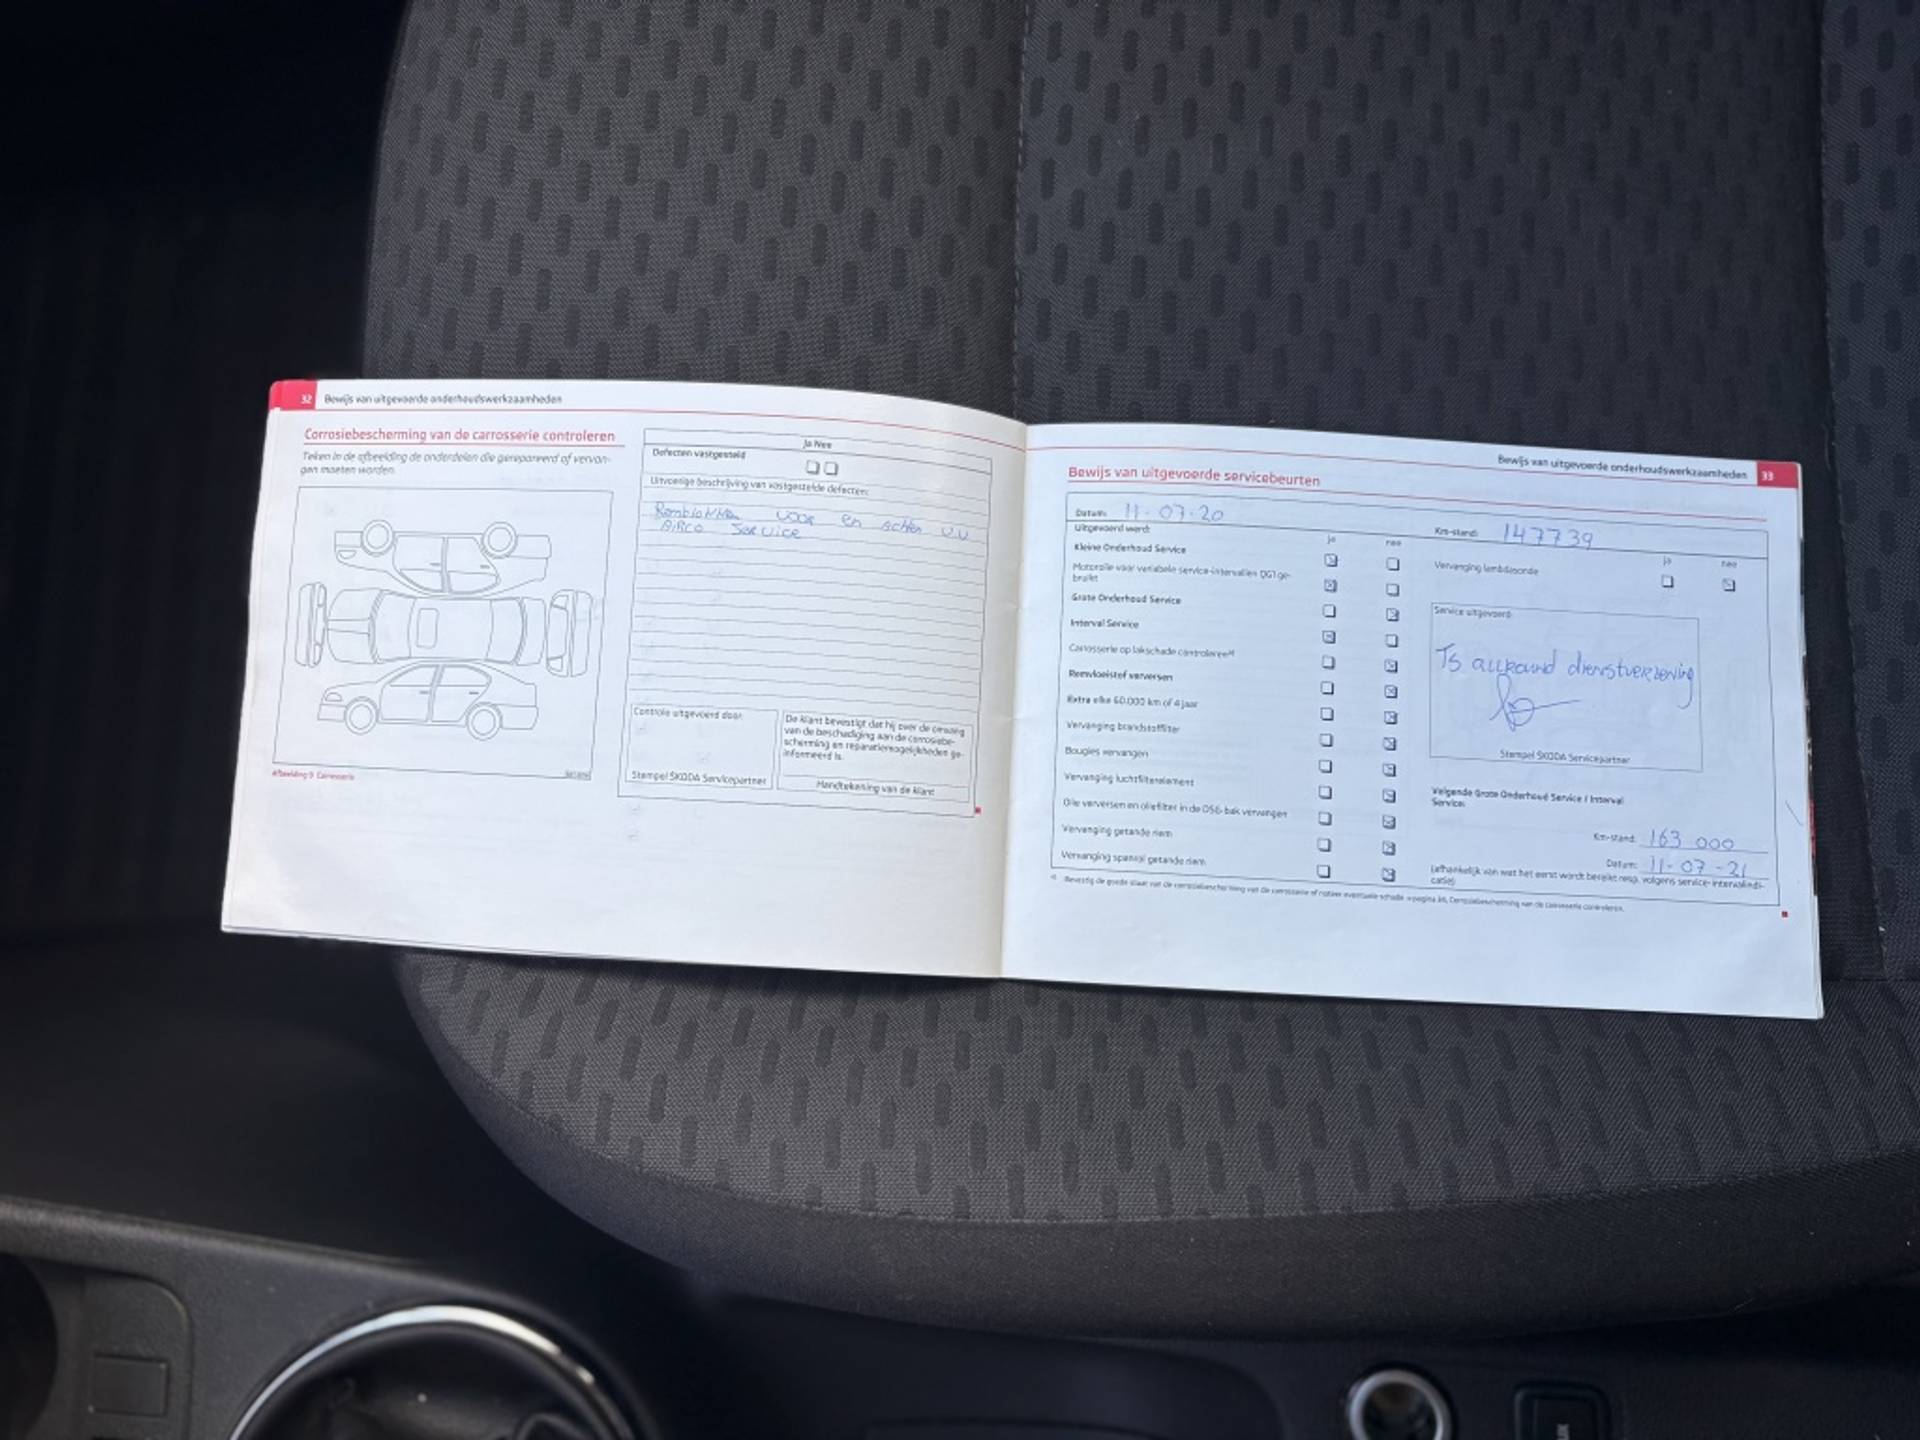 32 Bewijs van uitgevoerde onderhoudswerkzaamheden
Corrosiebescherming van de carrosserie controleren
Teken in de afbeelding de onderdelen die gerepareerd of vervan-
gen moeten worden.
Afbeelding 9 Carrosserie
Ja Nee
Defecten vastgesteld
Uitvoerige beschrijving van vastgestelde defecten:
Remblokken voor en achter v.v
AiRCO Service
Controle uitgevoerd door:
Stempel ŠKODA Servicepartner
De klant bevestigt dat hij over de omvang
van de beschadiging aan de corrosiebe-
scherming en reparatiemogelijkheden ge-
informeerd is.
Handtekening van de klant
Bewijs van uitgevoerde onderhoudswerkzaamheden 33
Bewijs van uitgevoerde servicebeurten
Datum: 11-07-20
Km-stand: 147739
Uitgevoerd werd:
ja nee
Kleine Onderhoud Service
Motorolie voor variabele service-intervallen QG1 ge-
bruikt
Grote Onderhoud Service
Interval Service
Carrosserie op lakschade controleren
Remvloeistof verversen
Extra elke 60.000 km of 4 jaar
Vervanging brandstoffilter
Bougies vervangen
Vervanging luchtfilterelement
Olie verversen en oliefilter in de DSG-bak vervangen
Vervanging getande riem
Vervanging spanrol getande riem
ja nee
Vervanging lambdasonde
Service uitgevoerd:
TS allround dienstverlening
Stempel ŠKODA Servicepartner
Volgende Grote Onderhoud Service / Interval
Service:
Km-stand: 163 000
Datum: 11-07-21
(afhankelijk van wat het eerst wordt bereikt resp. volgens service-intervalindi-
catie)
Bevestig de goede staat van de corrosiebescherming van de carrosserie of noteer eventuele schade